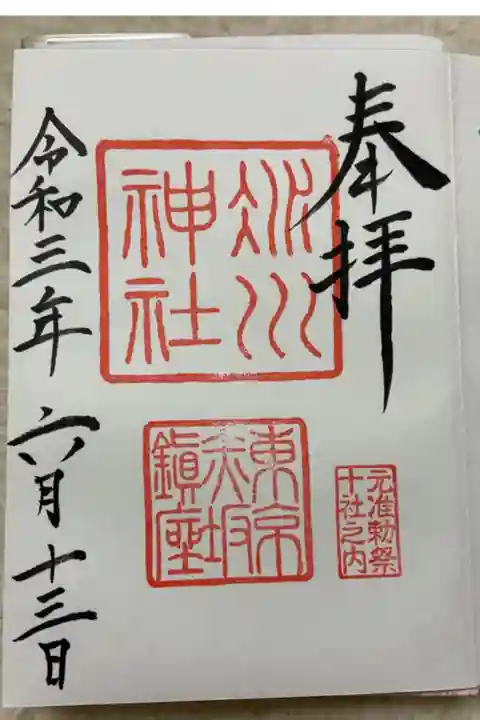 奉拝
氷川
神社
東京
赤坂
鎮座
元准勅祭
十社之内
令和三年 六月十三日